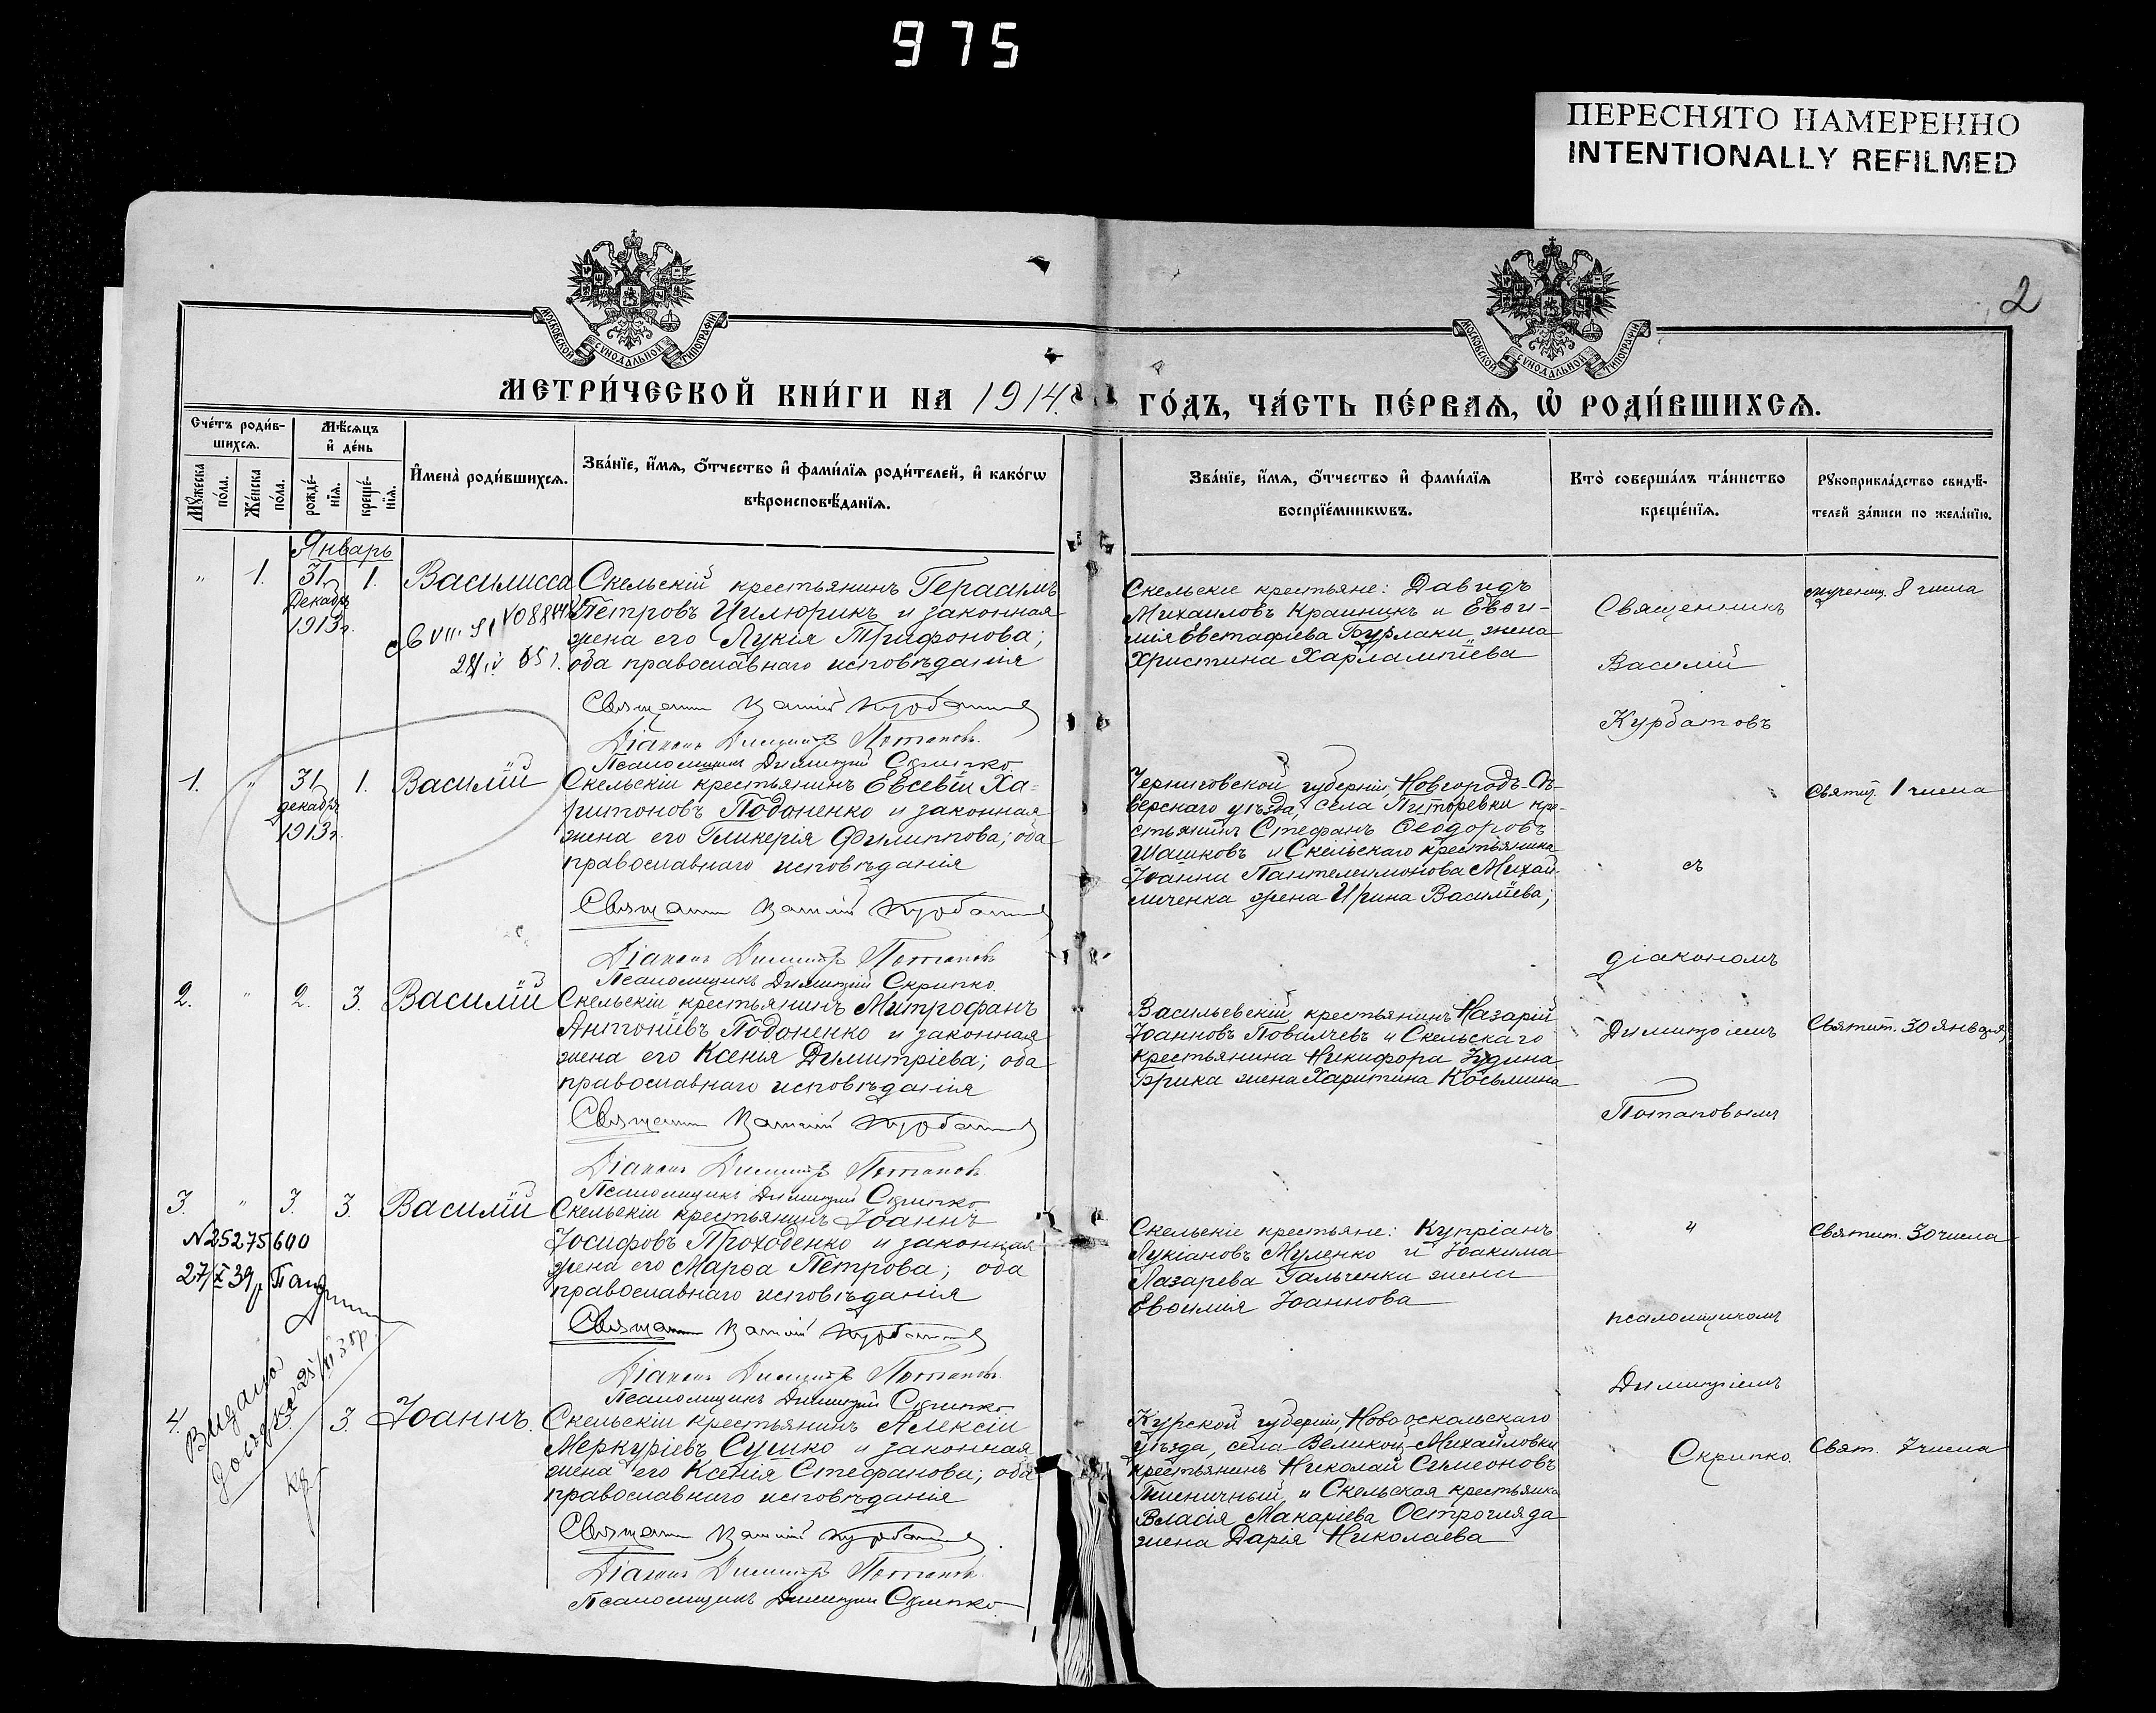 975
ПЕРЕСНЯТО НАМЕРЕННО
INTENTIONALLY REFILMED
2
МОСКОВСКОЙ СѴНОДАЛЬНОЙ ТИПОГРАФІИ
МОСКОВСКОЙ СѴНОДАЛЬНОЙ ТИПОГРАФІИ
МЕТРИ́ЧЕСКОЙ КНИ́ГИ НА 1914 г.
ГО́ДЪ, ЧА́СТЬ ПЕ́РВАѦ, Ѡ҆ РОДИ́ВШИХСѦ.
Сче́тъ роди́в-
шихсѧ.
Мѣ́сѧцъ
и҆ де́нь
Мꙋ́жеска
по́ла.
Же́нска
по́ла.
рожде́-
нїѧ.
креще́-
нїѧ.
И҆мена̀ роди́вшихсѧ.
Зва́нїе, и҆́мѧ, ѻ҆́тчество и҆ фами́лїѧ роди́телей, и҆ како́гѡ
вѣроисповѣ́данїѧ.
Зва́нїе, и҆́мѧ, ѻ҆́тчество и҆ фами́лїѧ
воспрїе́мникѡвъ.
Кто̀ соверша́лъ та́инство
креще́нїѧ.
Рꙋкоприкла́дство свидѣ́-
телей за́писи по жела́нїю.
Январь
" 1. 31. 1. Василисса
Декабр.
1913 г.
Скельскій крестьянинъ Герасимъ
Петровъ Цилюрикъ и законная
жена его Лукія Трифонова;
оба православнаго исповѣданія
Священн Василій Курбатовъ
Діаконъ Димитрій Потаповъ.
Псаломщикъ Димитрій Скрипко
Скельскіе крестьяне: Давидъ
Михаиловъ Краиникъ и Евѳи-
мія Евстафіева Бурлаки жена
Христина Харлампіева
Священникъ
Василій
Курбатовъ
8 числа
1. " 31 1. Василій
декабря
1913 г.
Скельскій крестьянинъ Евсевій Ха-
ритоновъ Подоненко и законная
жена его Гликерія Филиппова; оба
православнаго исповѣданія
Священн Василій Курбатовъ
Діаконъ Димитрій Потаповъ
Псаломщикъ Димитрій Скрипко.
Черниговской губерніи, Новгородъ-Сѣ-
верскаго уѣзда, села Питоревки кре-
стьянинъ Стефанъ Ѳеодоровъ
Шашковъ и Скельскаго крестьянина
Іоанна Пантелеимонова Михай-
личенка жена Ирина Васильева;
съ
діакономъ
Святит. 1 числа
2. " 2. 3. Василій
Скельскій крестьянинъ Митрофанъ
Антоніевъ Подоненко и законная
жена его Ксенья Димитріева; оба
православнаго исповѣданія
Священн Василій Курбатовъ
Діаконъ Димитрій Потаповъ
Псаломщикъ Димитрій Скрипко
Васильевскій крестьянинъ Назарій
Іоанновъ Повалчевъ и Скельскаго
крестьянина Никифора Іудина
Брика жена Харитина Косьмина
Димитріемъ
Потаповымъ
Святит. 30 января
3. " 3. 3. Василій
N 25275600
27/X 39 г
Скельскій крестьянинъ Іоаннъ
Іосифовъ Проходенко и законная
жена его Марѳа Петрова; оба
православнаго исповѣданія
Священн Василій Курбатовъ
Діаконъ Димитрій Потаповъ.
Псаломщикъ Димитрій Скрипко
Скельскіе крестьяне: Купріанъ
Лукіановъ Муленко и Іоакима
Лазарева Гальченки жена
Евѳимія Іоаннова
"
псаломщикомъ
Димитріемъ
Скрипко.
Святит. 30 числа
4. 3. Іоаннъ.
Видано
Скельскій крестьянинъ Алексій
Меркуріевъ Сушко и законная
жена его Ксенія Стефанова; оба
православнаго исповѣданія
Священн Василій Курбатовъ.
Діаконъ Димитрій Потаповъ.
Псаломщикъ Димитрій Скрипко
Курской губерніи, Новооскольскаго
уѣзда, села Великой-Михайловки
крестьянинъ Николай Симеоновъ
Пшеничный и Скельская крестьянка
Власія Макаріева Остроглада
жена Дарія Николаева
Свят. 7 числа